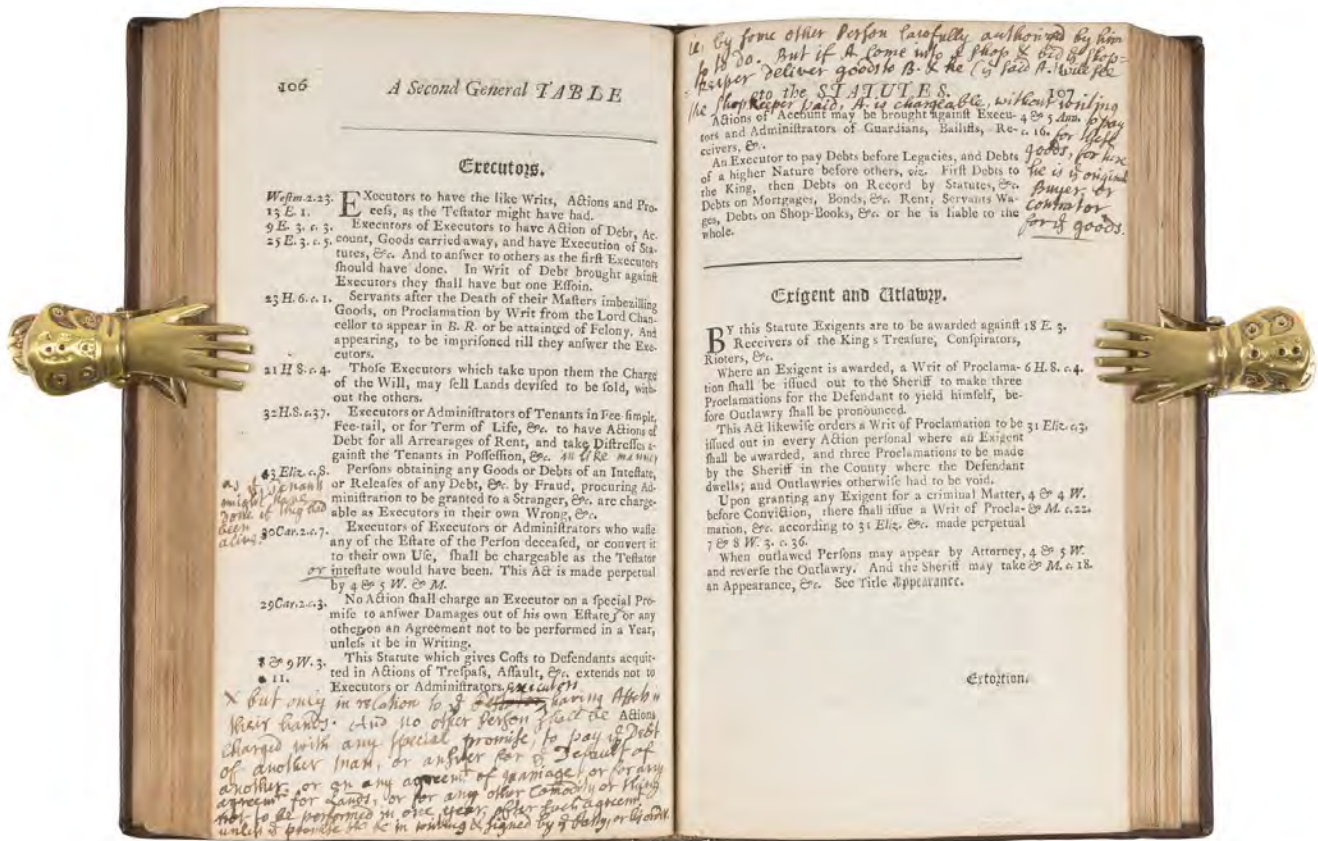 106
A Second General TABLE
Executors.
Westm.2.23.
13 E. 1.
EXecutors to have the like Writs, Actions and Pro-
cess, as the Testator might have had.
9 E. 3. c. 3.
Executors of Executors to have Action of Debt, Ac-
25 E. 3. c. 5.
count, Goods carried away, and have Execution of Sta-
tutes, &c. And to answer to others as the first Executors
should have done. In Writ of Debt brought against
Executors they shall have but one Essoin.
23 H. 6. c. 1.
Servants after the Death of their Masters imbezilling
Goods, on Proclamation by Writ from the Lord Chan-
cellor to appear in B. R. or be attained of Felony. And
appearing, to be imprisoned till they answer the Exe-
cutors.
21 H 8. c. 4.
Those Executors which take upon them the Charge
of the Will, may sell Lands devised to be sold, with-
out the others.
32 H.8. c.37.
Executors or Administrators of Tenants in Fee-simple,
Fee-tail, or for Term of Life, &c. to have Actions of
Debt for all Arrearages of Rent, and take Distresses a-
gainst the Tenants in Possession, &c. in like manner
as if tenant
might have
done if they had
been
alive.
43 Eliz. c. 8.
Persons obtaining any Goods or Debts of an Intestate,
or Releases of any Debt, &c. by Fraud, procuring Ad-
ministration to be granted to a Stranger, &c. are charge-
able as Executors in their own Wrong, &c.
30 Car. 2. c. 7.
Executors of Executors or Administrators who waste
any of the Estate of the Person deceased, or convert it
to their own Use, shall be chargeable as the Testator
or intestate would have been. This Act is made perpetual
by 4 & 5 W. & M.
29 Car. 2. c. 3.
No Action shall charge an Executor on a special Pro-
mise to answer Damages out of his own Estate, or any
other, on an Agreement not to be performed in a Year,
unless it be in Writing.
8 & 9 W. 3.
c 11.
This Statute which gives Costs to Defendants acquit-
ted in Actions of Trespass, Assault, &c. extends not to
Executors or Administrators.
executors
X but only in relation to ye having Assets in
their hands. And no other Person shall be
Actions
charged with any special promise, to pay ye Debt
of another man, or answer for ye Default of
another, or on any agreemt of marriage, or for any
agreemt for Lands, or for any other Comodity or thing
not to be performed in one year, after such agreemt
unless ye promise be in writing & signed by ye Party, or by order
ie, by some other Person lawfully authorized by him
so to do. But if A come into a Shop & bid ye Shop-
keeper deliver goods to B. & he (ye said A.) will see
to the STATUTES.
107
the Shopkeeper paid, A. is chargeable, without writing
to pay
for these
goods, for here
he is ye original
Buyer, or
contractor
for ye goods.
Actions of Account may be brought against Execu-
4 & 5 Ann.
tors and Administrators of Guardians, Bailiffs, Re-
c. 16.
ceivers, &c.
An Executor to pay Debts before Legacies, and Debts
of a higher Nature before others, viz. First Debts to
the King, then Debts on Record by Statutes, &c.
Debts on Mortgages, Bonds, &c. Rent, Servants Wa-
ges, Debts on Shop-Books, &c. or he is liable to the
whole.
Exigent and Utlawry.
BY this Statute Exigents are to be awarded against
18 E. 3.
Receivers of the King s Treasure, Conspirators,
Rioters, &c.
Where an Exigent is awarded, a Writ of Proclama-
6 H. 8. c. 4.
tion shall be issued out to the Sheriff to make three
Proclamations for the Defendant to yield himself, be-
fore Outlawry shall be pronounced.
This Act likewise orders a Writ of Proclamation to be
31 Eliz. c. 3.
issued out in every Action personal where an Exigent
shall be awarded, and three Proclamations to be made
by the Sheriff in the County where the Defendant
dwells; and Outlawries otherwise had to be void.
Upon granting any Exigent for a criminal Matter,
4 & 4 W.
before Conviction, there shall issue a Writ of Procla-
& M. c. 22.
mation, &c. according to 31 Eliz. &c. made perpetual
7 & 8 W. 3. c. 36.
When outlawed Persons may appear by Attorney,
4 & 5 W
and reverse the Outlawry. And the Sheriff may take
& M. c. 18.
an Appearance, &c. See Title Appearance.
Extortion.